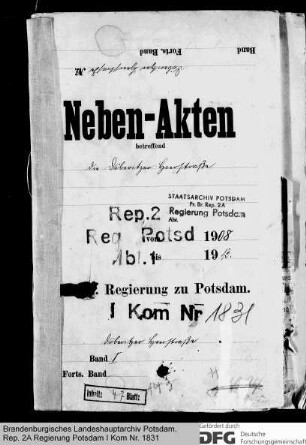 Band
Forts. Band
№
Neben-Akten
betreffend
die Döberitzer Heerstraße
STAATSARCHIV POTSDAM
Pr. Br. Rep. 2A
Regierung Potsdam
Abt.
Rep.2
Reg Potsd 1908
Abt.1 bis 19
Regierung zu Potsdam.
I Kom Nr 1831
Döberitzer Heerstraße
Band I
Forts. Band
47 Blatt
Brandenburgisches Landeshauptarchiv Potsdam.
Rep. 2A Regierung Potsdam I Kom Nr. 1831
Gefördert durch
DFG Deutsche
Forschungsgemeinschaft